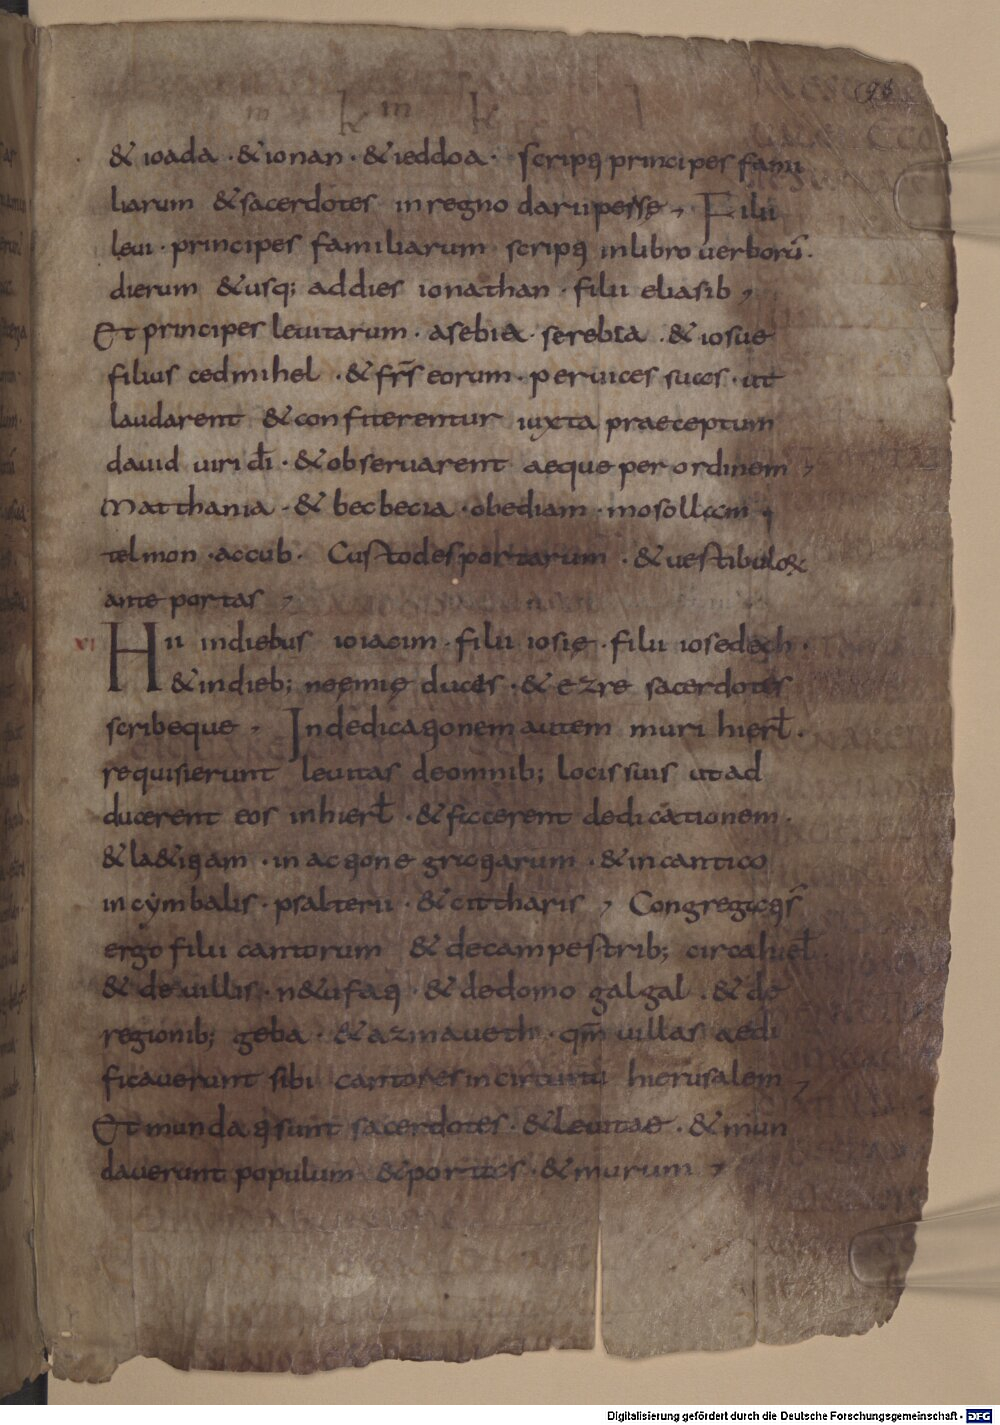 & ioada · & ionan · & ieddoa · scripti principes fami
liarum & sacerdotes in regno darii perse , Filii
leui · principes familiarum scripti in libro uerborū ·
dierum & usq; ad dies ionathan · filii eliasib ,
Et principes leuitarum · asebia · serebia · & iosue
filius cedmihel · & frs̄ eorum · per uices suas · ut
laudarent & confiterentur iuxta praeceptum
dauid uiri dī · & obseruarent aeque per ordinem ,
Matthania · & becbecia · obediam · mosollam ,
telmon · accub · Custodes portarum · & uestibuloꝝ
ante portas ,
VI Hii in diebus ioiacim · filii iosię · filii iosedech ·
& in dieb; neęmię ducis · & ezre sacerdotis
scribeque , In dedicatione autem muri hierl̄ ·
requisierunt leuitas de omnib; locis suis ut ad
ducerent eos in hierl̄ · & facerent dedicationem ·
& l&itiam · in actione gratiarum · & in cantico
in cymbalis · psalterii · & citharis , Congregati s̄
ergo filii cantorum & de campestrib; circa hierl̄ ·
& de uillis · n&ufati · & de domo galgal · & de
regionib; geba · & azmaueth · qm̄ uillas aedi
ficauerunt sibi cantores in circuitu hierusalem ,
Et mundati sunt sacerdotes · & leuitae · & mun
dauerunt populum & portas · & murum ,
Digitalisierung gefördert durch die Deutsche Forschungsgemeinschaft - DFG